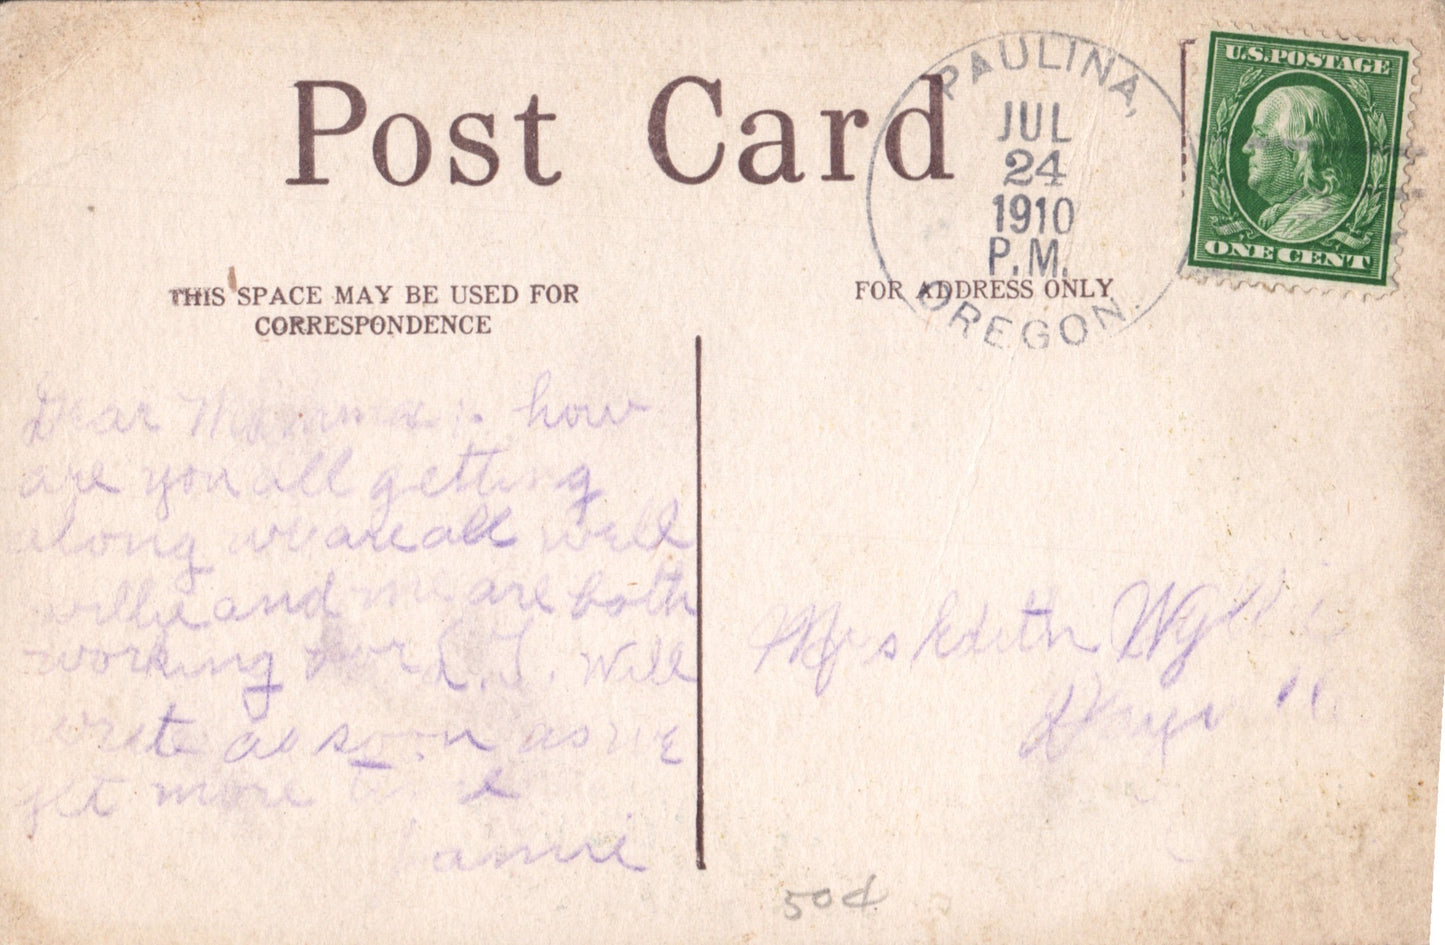 Post Card
PAULINA,
JUL
24
1910
P.M.
OREGON.
U.S. POSTAGE
ONE CENT
THIS SPACE MAY BE USED FOR
CORRESPONDENCE
FOR ADDRESS ONLY
Dear Mamma how
are you all getting
along we are all well
willie and me are both
working for L.S. Will
write as soon as we
get more time
Mrs Edith
50¢